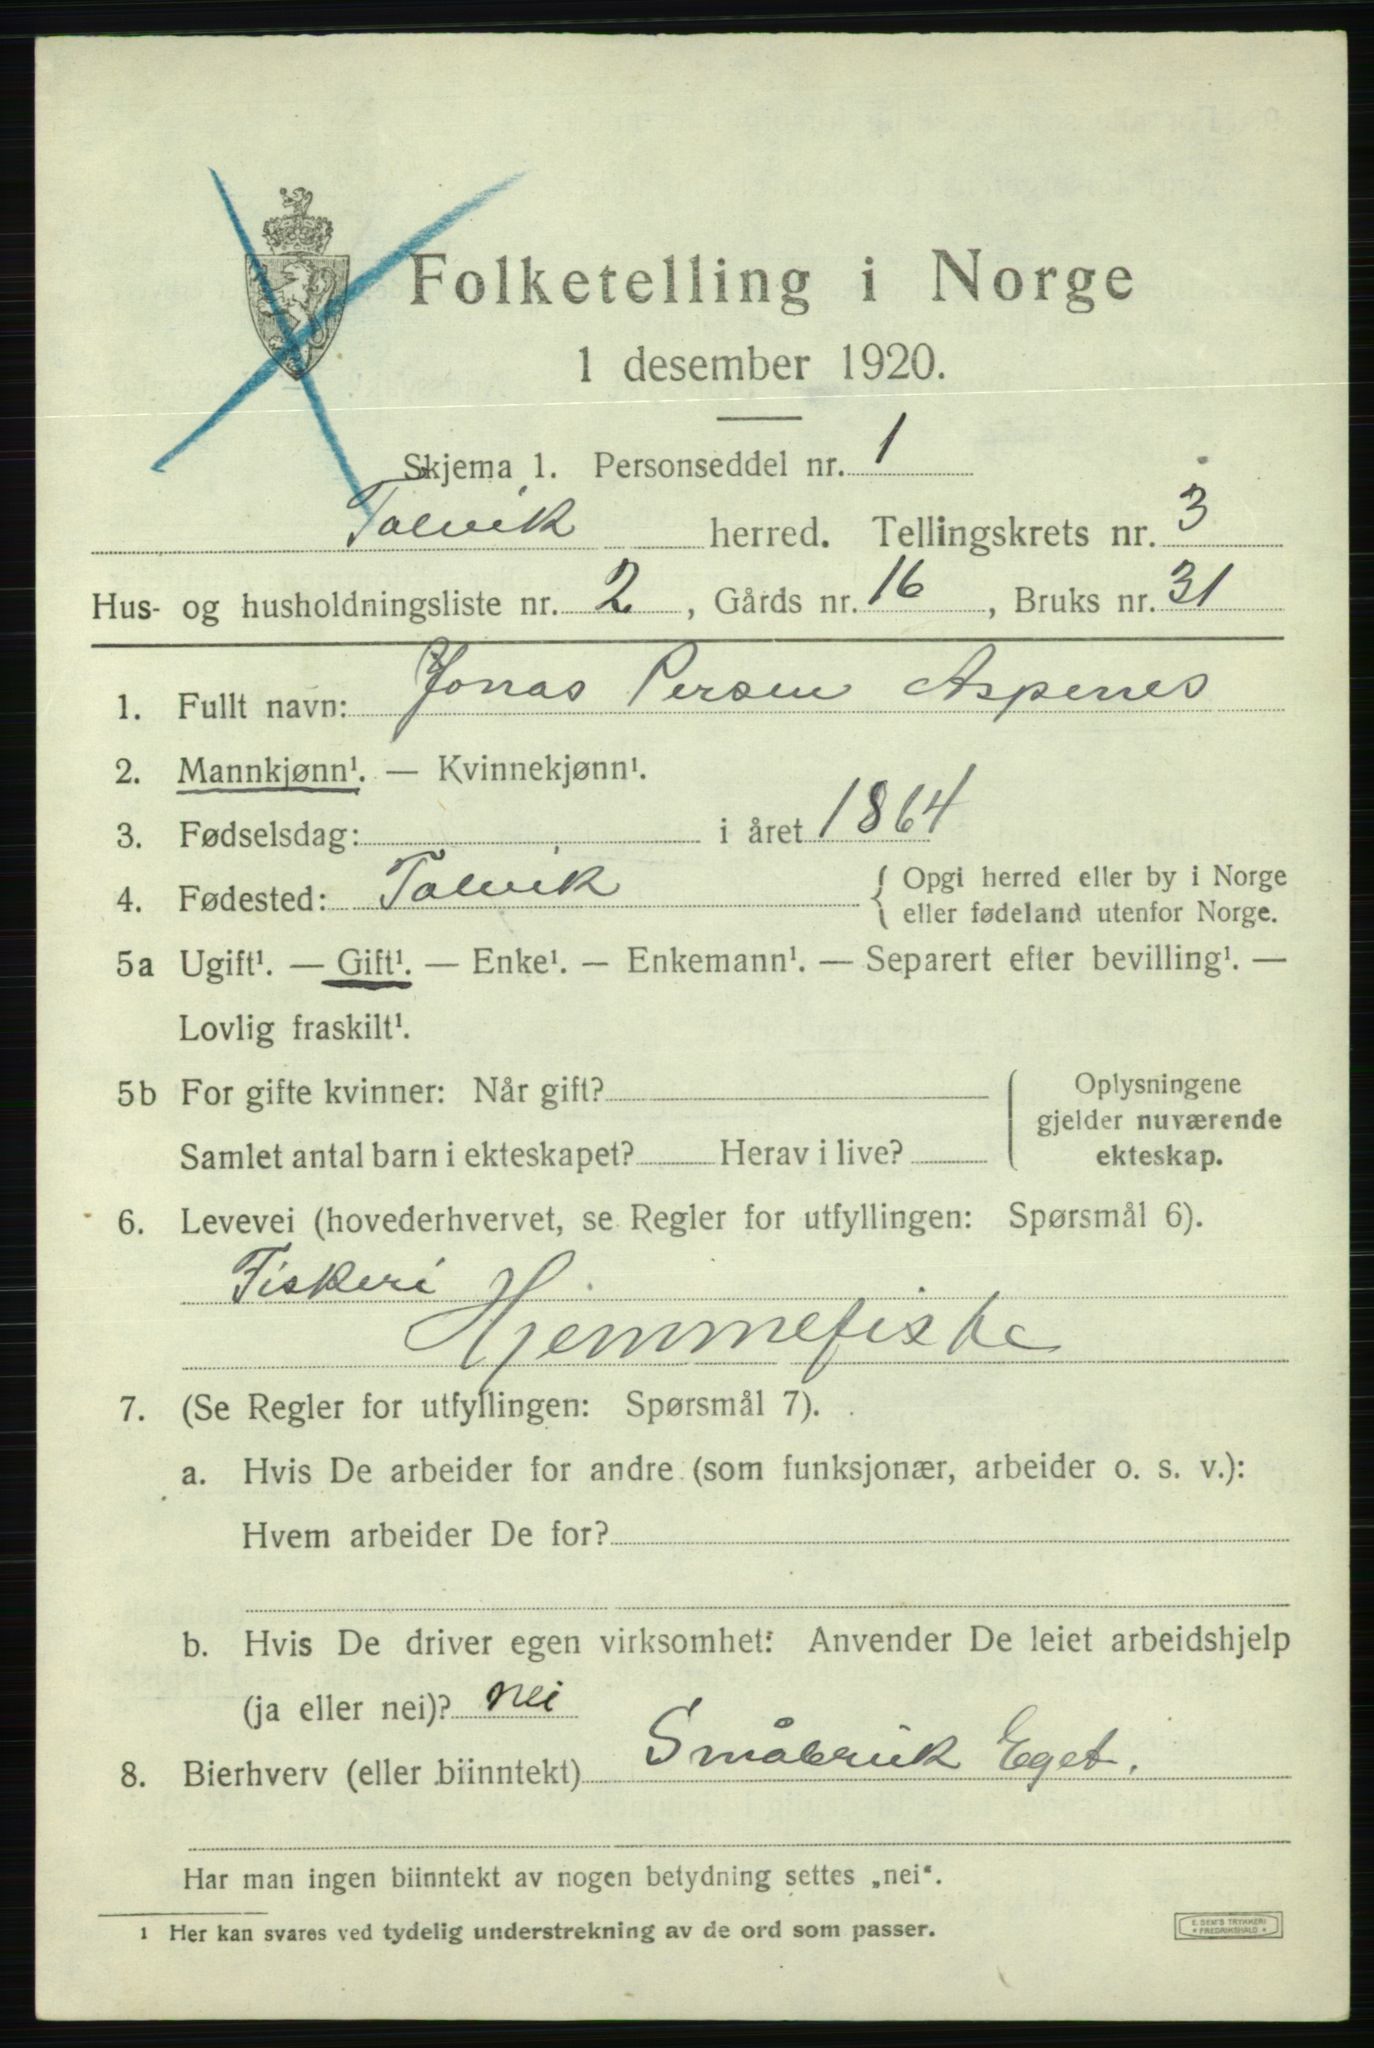 Folketelling i Norge
1 desember 1920.
Skjema 1. Personseddel nr. 1
Talvik herred. Tellingskrets nr. 3
Hus- og husholdningsliste nr. 2, Gårds nr. 16, Bruks nr. 31
1. Fullt navn: Jonas Persen Aspenes
2. Mannkjønn¹. — Kvinnekjønn¹.
3. Fødselsdag: i året 1864
4. Fødested: Talvik { Opgi herred eller by i Norge
eller fødeland utenfor Norge.
5a Ugift¹. — Gift¹. — Enke¹. — Enkemann¹. — Separert efter bevilling¹. —
Lovlig fraskilt¹.
5b For gifte kvinner: Når gift?
Samlet antal barn i ekteskapet? Herav i live?
Oplysningene
gjelder nuværende
ekteskap.
6. Levevei (hovederhvervet, se Regler for utfyllingen: Spørsmål 6).
Fiskeri
Hjemmefiske
7. (Se Regler for utfyllingen: Spørsmål 7).
a. Hvis De arbeider for andre (som funksjonær, arbeider o. s. v.):
Hvem arbeider De for?
b. Hvis De driver egen virksomhet: Anvender De leiet arbeidshjelp
(ja eller nei)? nei
8. Bierhverv (eller biinntekt) Småbruk Eget.
Har man ingen biinntekt av nogen betydning settes „nei".
¹ Her kan svares ved tydelig understrekning av de ord som passer.
E. SEM'S TRYKKERI
* FREDRIKSHALD *